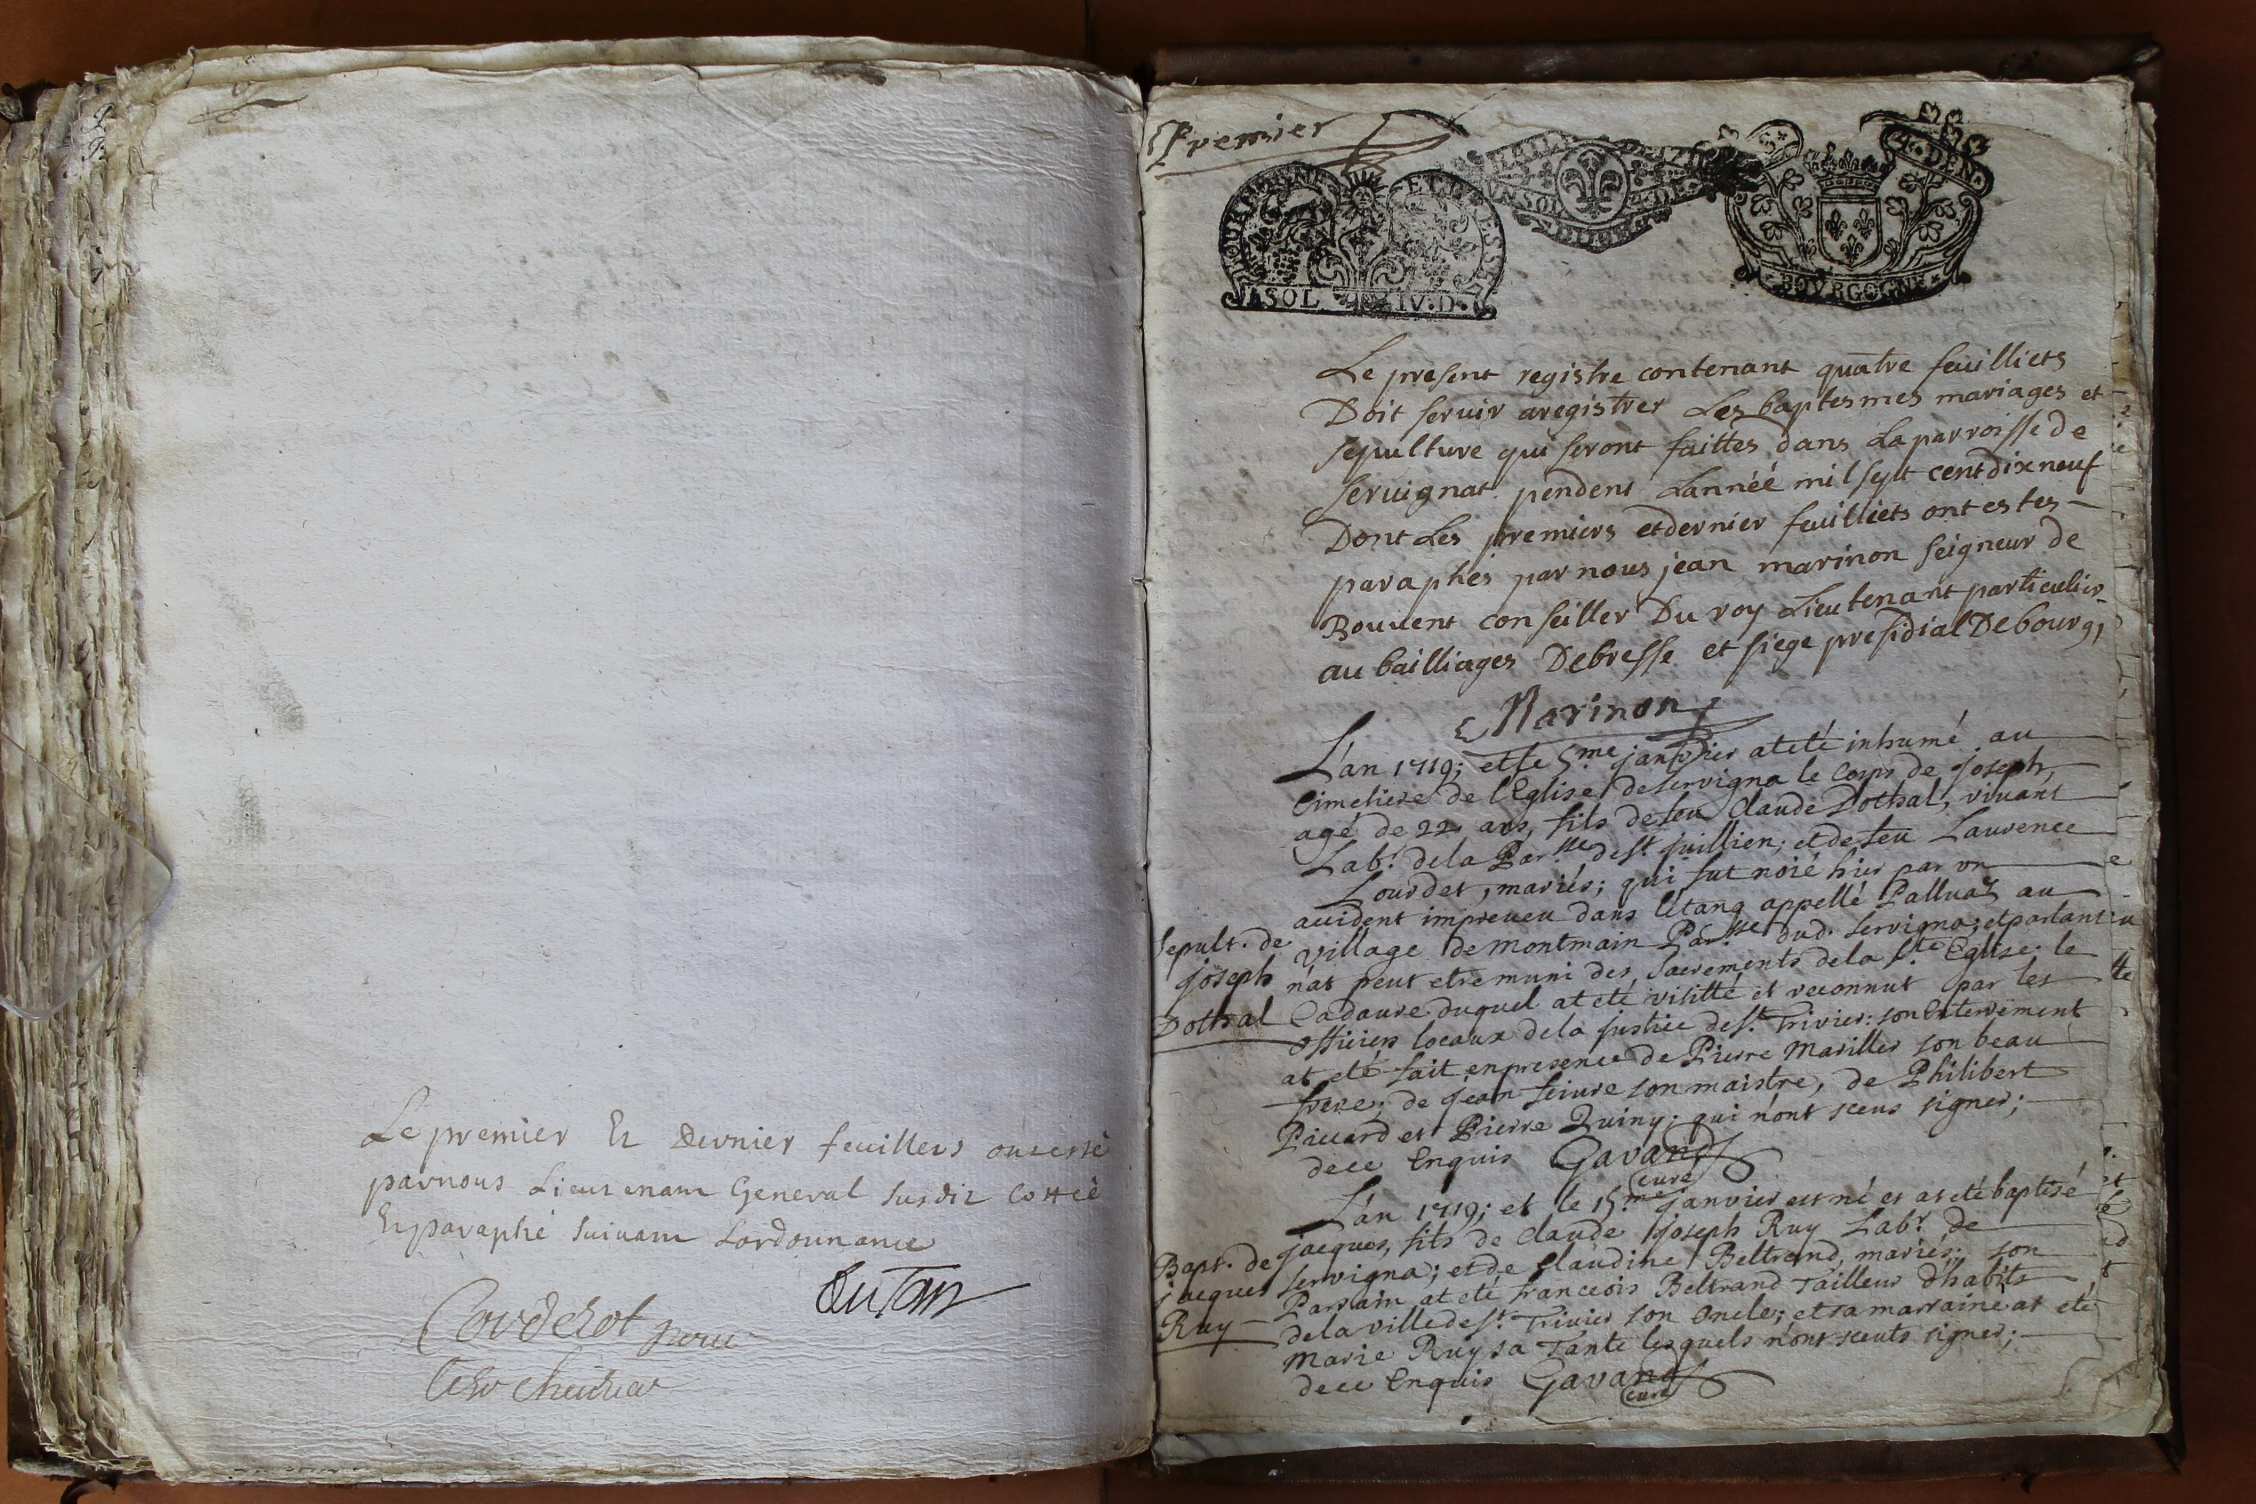 Le premier Et Dernier feuillets ont esté
par nous Lieutenant General susdit Cotteé
Et paraphé suivant Lordonnance
Premier
BOURGOGNE ET BRESSE
1 SOL IV. D.
UN SOL 4. DE.
S. 4. DEN.
BOVRGOGNE
Le present registre contenant quatre feuilliets
Doit servir aregistrer Les baptesmes mariages et
sepulture qui seront faittes dans La parroisse de
servignat pendent Lannéé mil sept cent dix neuf
Dont Les premiers et dernier feuilliets ont estes
paraphés par nous jean marinon seigneur de
Bouvent conseiller Du roy Lieutenant particulier
au bailliages De bresse et siege presidial De bourg,
Marinon
L'an 1719; et le 5.me janvier at eté inhumé au
Cimetiere de l'Eglise de servigna le Corps de joseph,
agé de 22 ans, fils de feu Claude Dothal, vivant
Lab.r de la Par.sse de s.t juillien; et de feu Laurence
Lourdet, mariés; qui fut noié hier par un
accident impreveu dans l'etang appellé Palluaz au
village de montmain Par.sse dud. servigna; et partant
n'at peut etre muni des Sacrements de la S.te Eglise. le
Cadavre duquel at eté visitté et reconnut par les
officiers locaux de la justice de s.t Trivier: son Enterrement
at eté fait en presence de Pierre Marillier son beau
frere; de jean feivre son maistre, de Philibert
Piccard et Pierre Quiny; qui n'ont sceus signer;
de ce Enquis Gavand
curé
Sepult. de
joseph
Dothal
L'an 1719; et le 15.me janvier est né et at eté baptisé
jacques, fils de Claude joseph Ruy Lab.r de
servigna; et de Claudine Beltrand, mariés; son
Parrain at eté francois Beltrand Tailleur d'habits
de la ville de s.t Trivier son oncle; et sa marraine at eté
Marie Ruy sa Tante lesquels n'ont sceuts signer;
de ce Enquis Gavand
curé
Bapt. de
jacques
Ruy